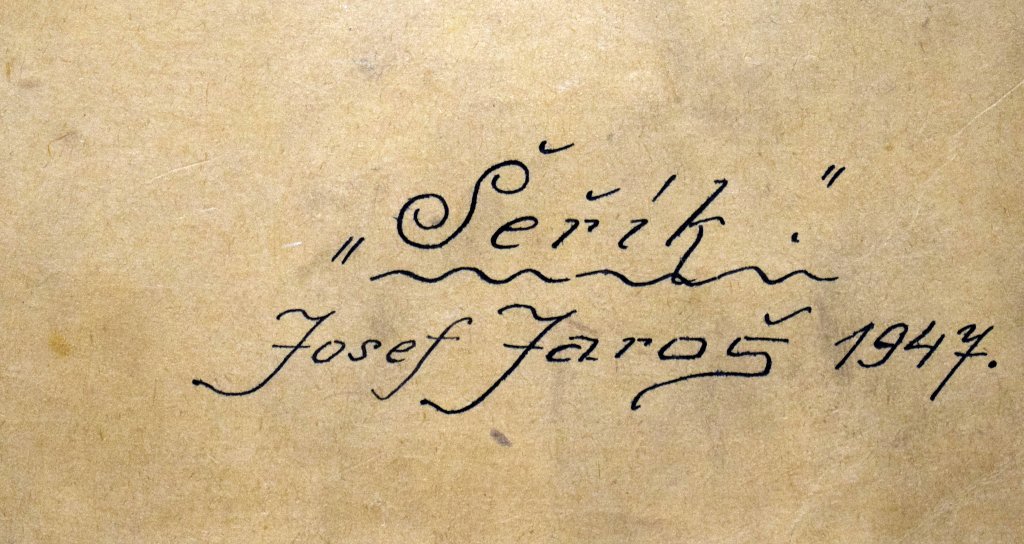 „Šeřík."
Josef Jaroš 1947.